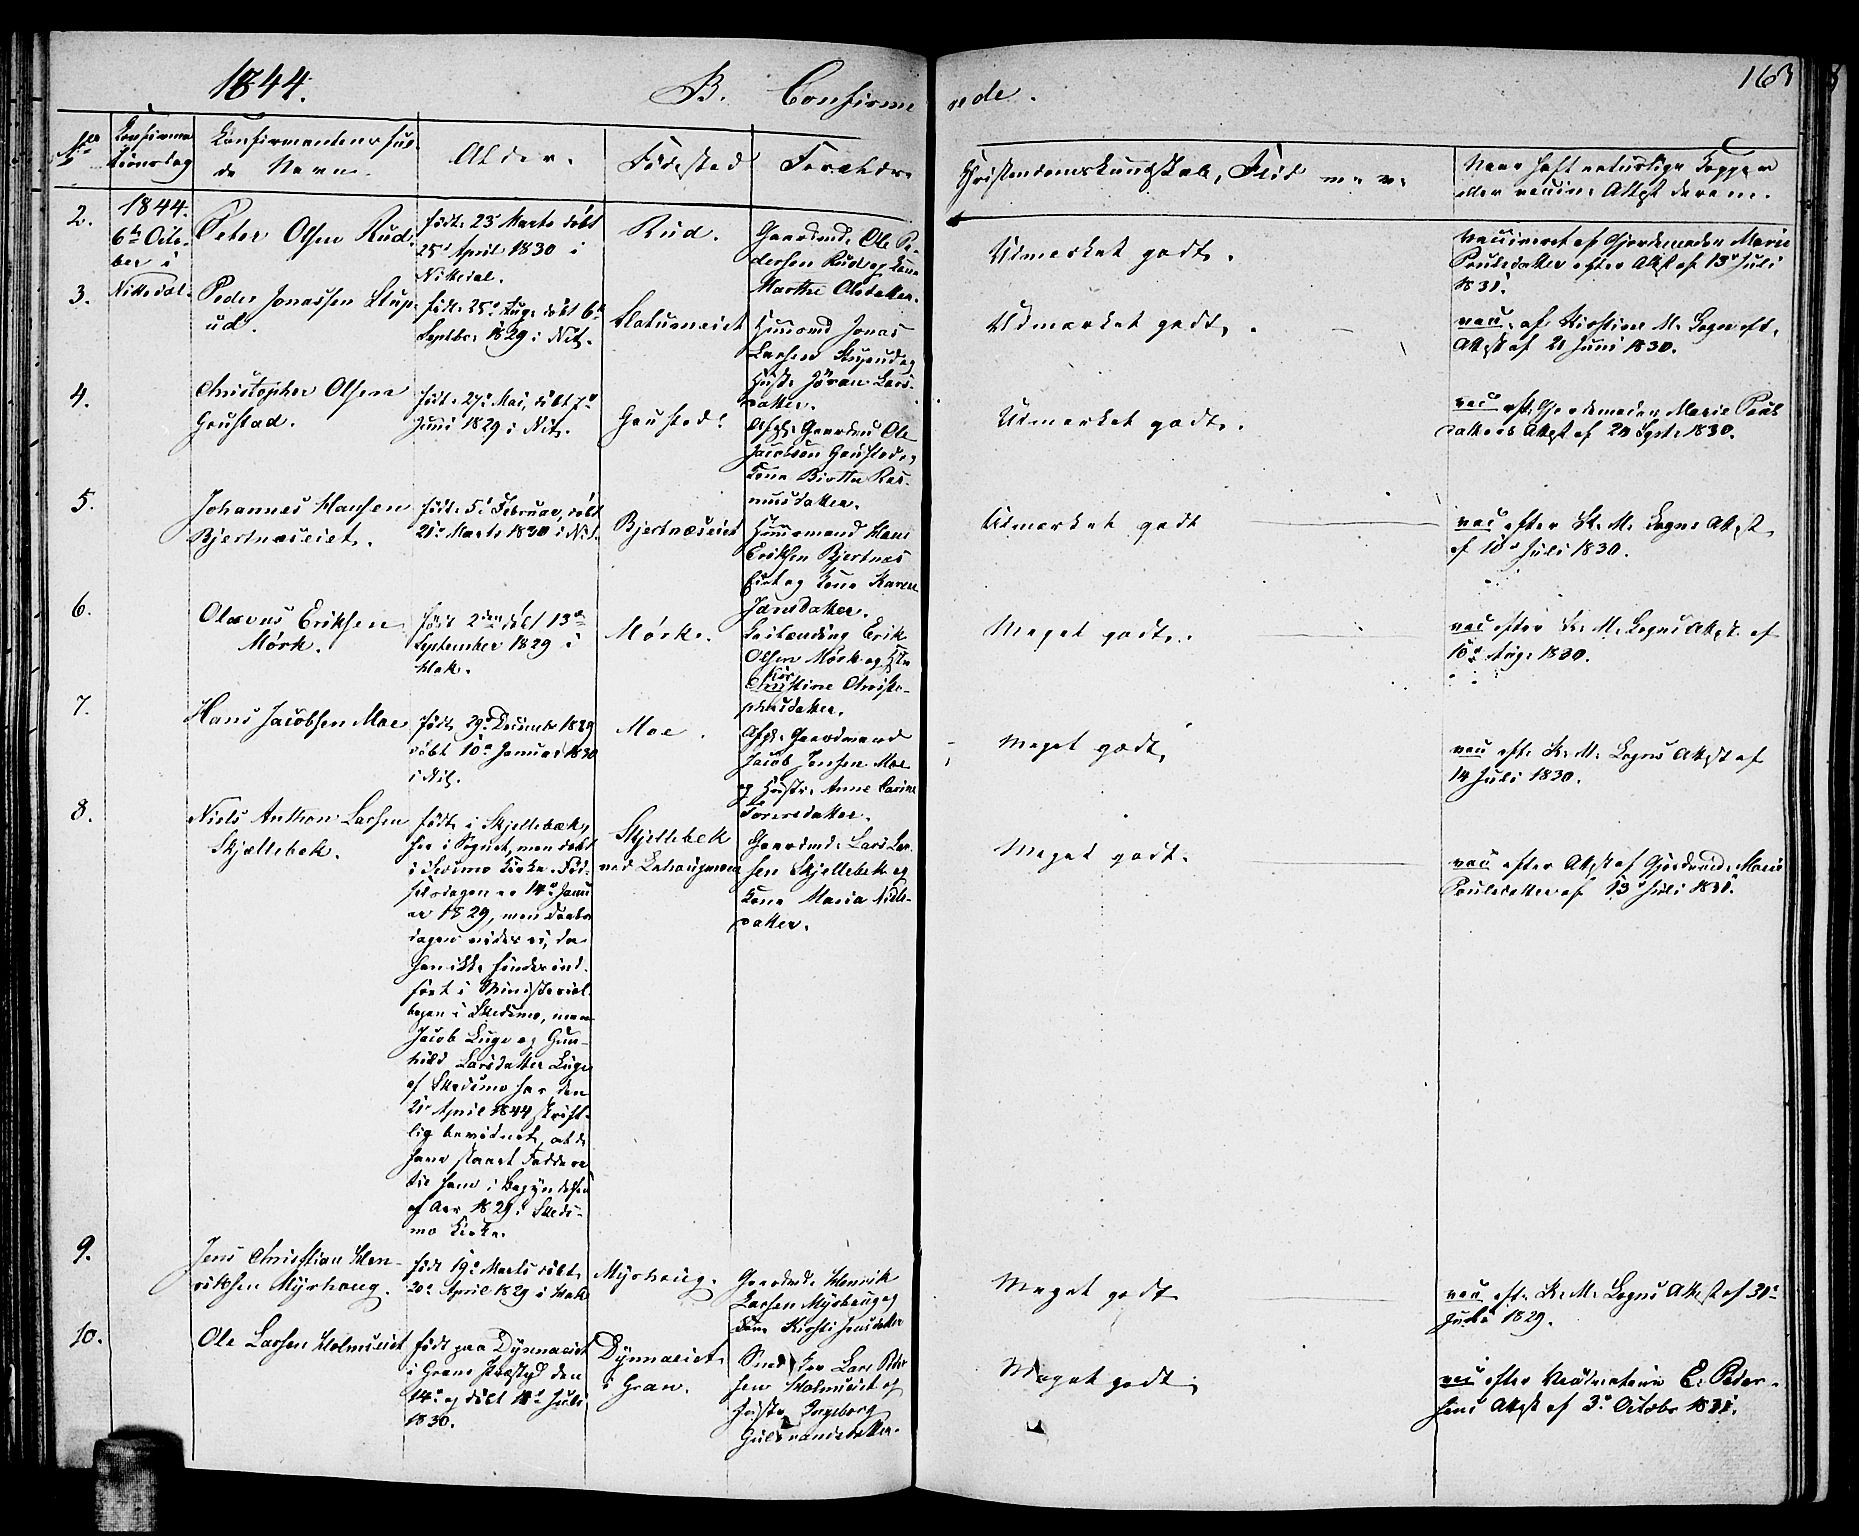 1844. B. Confirmerede. 163
No Confirmationsdag Confirmandens fulde Navn. Alder. Fødested Forældre Christendomskundskab, Flid m.v. Naar haft naturlige Kopper
eller vaccine Attest derom.
2. 1844.
6te Octo-
ber i
Nittedal.
Peter Olsen Rud.
født 23 Marts døbt
25d April 1830 i
Nittedal.
Rud.
Gaardmd. Ole Pe-
dersen Rud og Kone
Marthe Olsdatter.
Udmærket godt.
vaccineret af Gjordemoder Marie
Poulsdatter efter Attest af 13d Juli
1831.
3.
Peder Jonassen Stup-
ud.
født 25d Aug. døbt 6d
Septbr. 1829 i Nit.
Husmd Jonas
Larsen Stupud og
Hustr. Jøran Lars-
datter.
Udmærket godt.
vac. af Kirstine M. Sogn eft.
Attest af 21 Juni 1830.
4.
Christopher Olsen
Goustad.
født 27d Mai, døbt 7d
Juni 1829 i Nit.
Goustad.
Afg. Gaardmd Ole
Jacobsen Goustad og
Kone Birthe Ras-
musdatter.
Udmærket godt.
vac eft. Gjordemoder Marie Pouls
datters Attest af 24 Sept. 1830.
5.
Johannes Hansen
Bjertnæseiet.
født 5d Februar, døbt
21d Marts 1830 i Nit.
Bjertnæseiet
Husmand Hans
Eriksen Bjertnæs
Eiet og Kone Karen
Jansdatter.
Udmærket godt
vac efter K. M. Sogns Attest
af 10d Juli 1830.
6.
Olavus Eriksen
Mørk.
født 2den døbt 13d
September 1829 i
Hak.
Mørk.
Leilænding Erik
Olsen Mørk og Hstr
Christine Christo-
phersdatter.
Meget godt.
vac efter K. M. Sogns Attest af
16d Aug. 1830.
7.
Hans Jacobsen Moe
født 29d Decembr 1829
døbt 10d Januar 1830
i Nit.
Moe.
Afg. Gaardmand
Jacob Jensen Moe
og Hustr. Anne Carine
Toresdatter.
Meget godt,
vac eft. K. M. Sogns Attest af
14 Juli 1830.
8.
Niels Anthon Larsen
Skjællebek.
født i Skjellebæk,
her i Sognet, men døbt
i Skedsmo Kirke. Fød-
selsdagen er 14d Janu
ar 1829, men Daabs
dagen vides ei, da
han ikke findes ind-
ført i Ministerial-
bogen i Skedsmo, men
Jacob Luge og Gun-
hild Larsdatter Luge
af Skedsmo har den
21d April 1844 skrift-
lig bevidnet, at de
have staaet Faddere
til ham i Begyndelsen
af Aar 1829 i Skeds-
mo Kirke.
Skjellebek
Gaardmd. Lars Lar-
sen Skjellebek og
Kone Maria Niels-
datter.
Meget godt.
vac efter Attest af Gjordmod. Marie
Poulsdatter af 13d Juli 1831.
9.
Jens Christian Hen-
riksen Myrhaug.
født 19d Marts døbt
20d April 1829 i Hak
Myrhaug.
Gaardmd. Henrik
Larsen Myrhaug og
Kone Kirsti Jensdatter
Meget godt
vac eft. K. M. Sogns Attest af 31d
Juli 1829.
10.
Ole Larsen Holmseiet
født paa Dynnaeiet
i Grans Præstgd den
14d og døbt 18d Juli
1830.
Dynnaeiet
i Gran.
Lars Peder
sen Holmseiet og
Hustr. Ingeborg
Gulbrandsdatter.
Meget godt
vac efter Vaccinateur E. Peder-
sens Attest af 3d Octobr 1831.